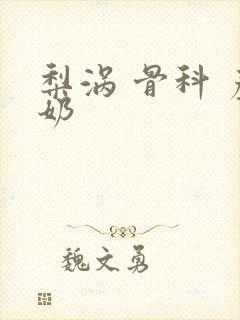 梨涡 骨科
奶
魏文勇